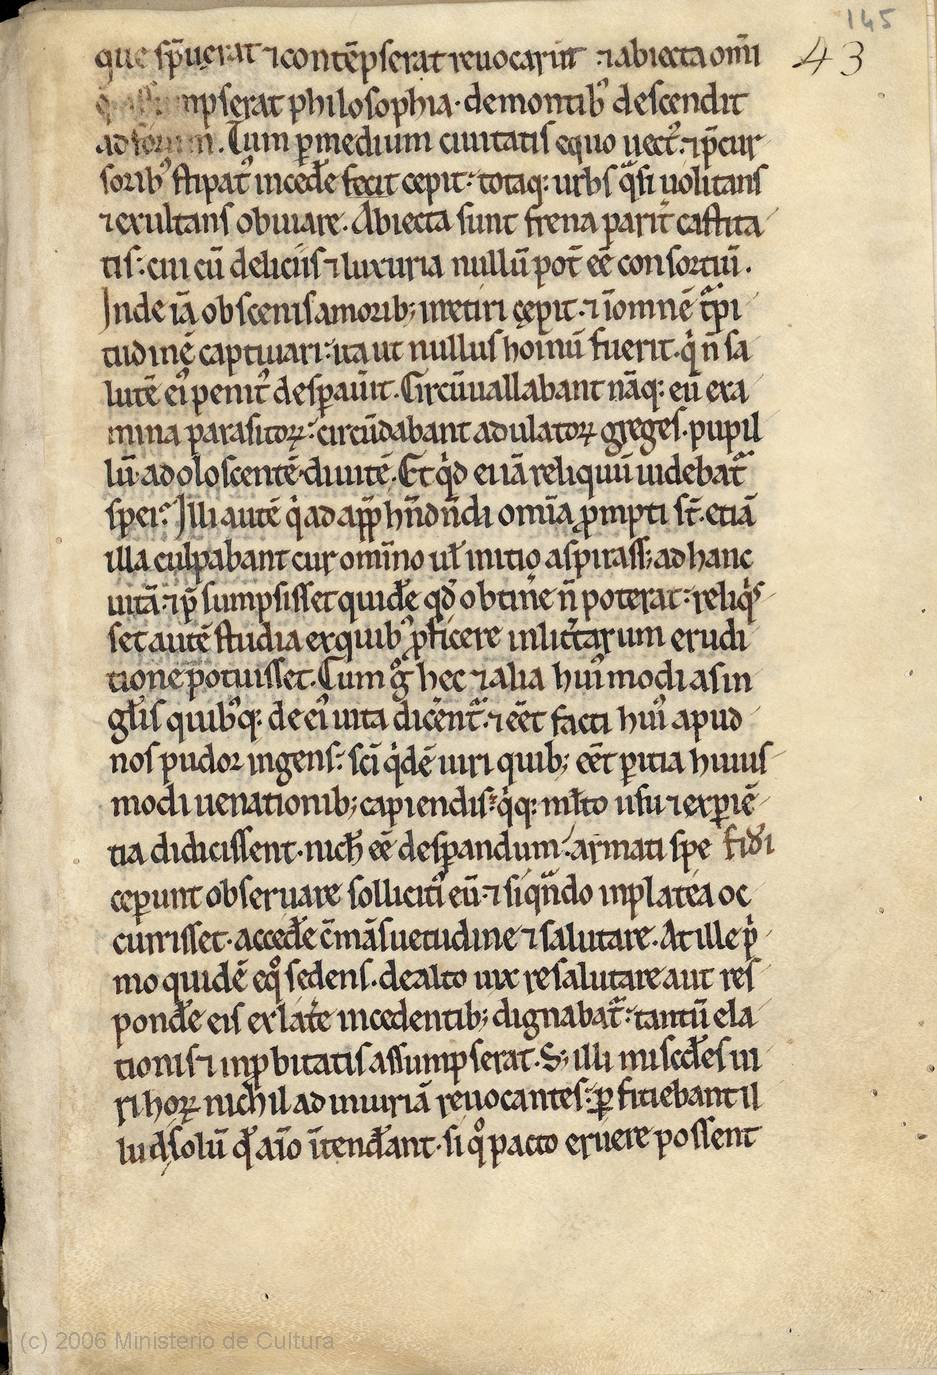 145
43
que sp̄uerat ⁊ contēpserat reuocarūt ⁊ abiecta om̄i
mpserat philosophia· demontibꝰ descendit
ad forum. Tum ꝑ medium ciuitatis equo uectꝰ· ⁊ p̄cur
soribꝰ stipatꝰ inced̄e fecit cepit· totaq; urbs q̄si uolitans
⁊ exultans obuiare. Abiecta sunt frena parit̄ castita
tis: cui cū deliciis ⁊ luxuria nullū pot̄ eē consortiū.
Inde iā obscenis amorib; irretiri cępit· ⁊ īomnē t̄pi
tudinē captiuari: ita ut nullus hoīnū fuerit· q̇ n̄ sa
lutē eiꝰ penitꝰ desꝑau̇it. Circūuallabant nāq; eū exa
mina parasitoꝝ: circūdabant adulatoꝝ greges. pupil
lū· adoloscentē· diuitē. Et q̇d ei iā reliquū uidebat̄
spei? Illi autē q̇ ad app̄hn̄dn̄di omīa ꝓmpti st̄· etiā
illa culpabant cur omīno ul̄ initio aspirass; ad hanc
uitā: ⁊ p̄sumpsisset quid̄e qd̄ obtin̄e n̄ poterat: reliq̇s
set autē studia ex quibꝰ ꝓficere in litt̄arum erudi
tione potuisset. Cum g̊ hec ⁊ alia huiꝰmodi a sin
gl̄is quibꝰq; de eiꝰ uita dic̄ent̄· ⁊ eēt facti huiꝰ apud
nos pudor ingens: sc̄i q̇dē uiri quib; eēt ꝑitia huius
modi uenationib; capiendis· q̇q; ml̄to usu ⁊ exꝑiē
tia didicissent· nich̄ eē desꝑandum: armati spe fid̄i
ceꝑunt obseruare solliciti eū· ⁊ siqn̄do in platea oc
currisset· acced̄e c̄ māsuetudine ⁊ salutare. At ille ṗ
mo quidē eq̊ sedens· de alto uix resalutare aut res
pond̄e eis ex lat̄e incedentib; dignabat̄: tantū ela
tionis ⁊ inꝓbitatis assumpserat. S; illi mised̄es ui
ri hoꝝ nichil ad iniuriā reuocantes: ꝑfitiebant il
lud solū qd̄ aīo ītend̄ant· si q̊ pacto eruere possent
(c) 2006 Ministerio de Cultura